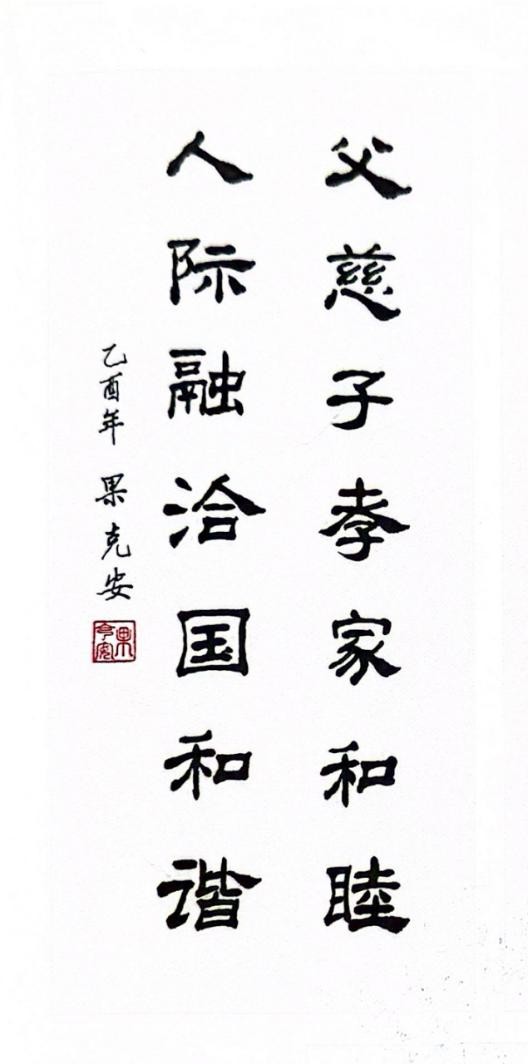 父慈子孝家和睦
人际融洽国和谐
乙酉年 果克安
果克安